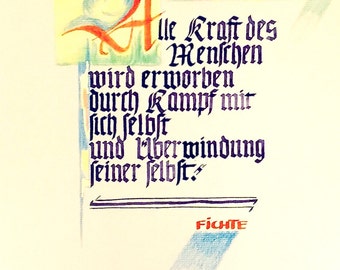 Alle Kraft des
Menschen
wird erworben
durch Kampf mit
sich selbst
und Überwindung
seiner selbst.
FICHTE